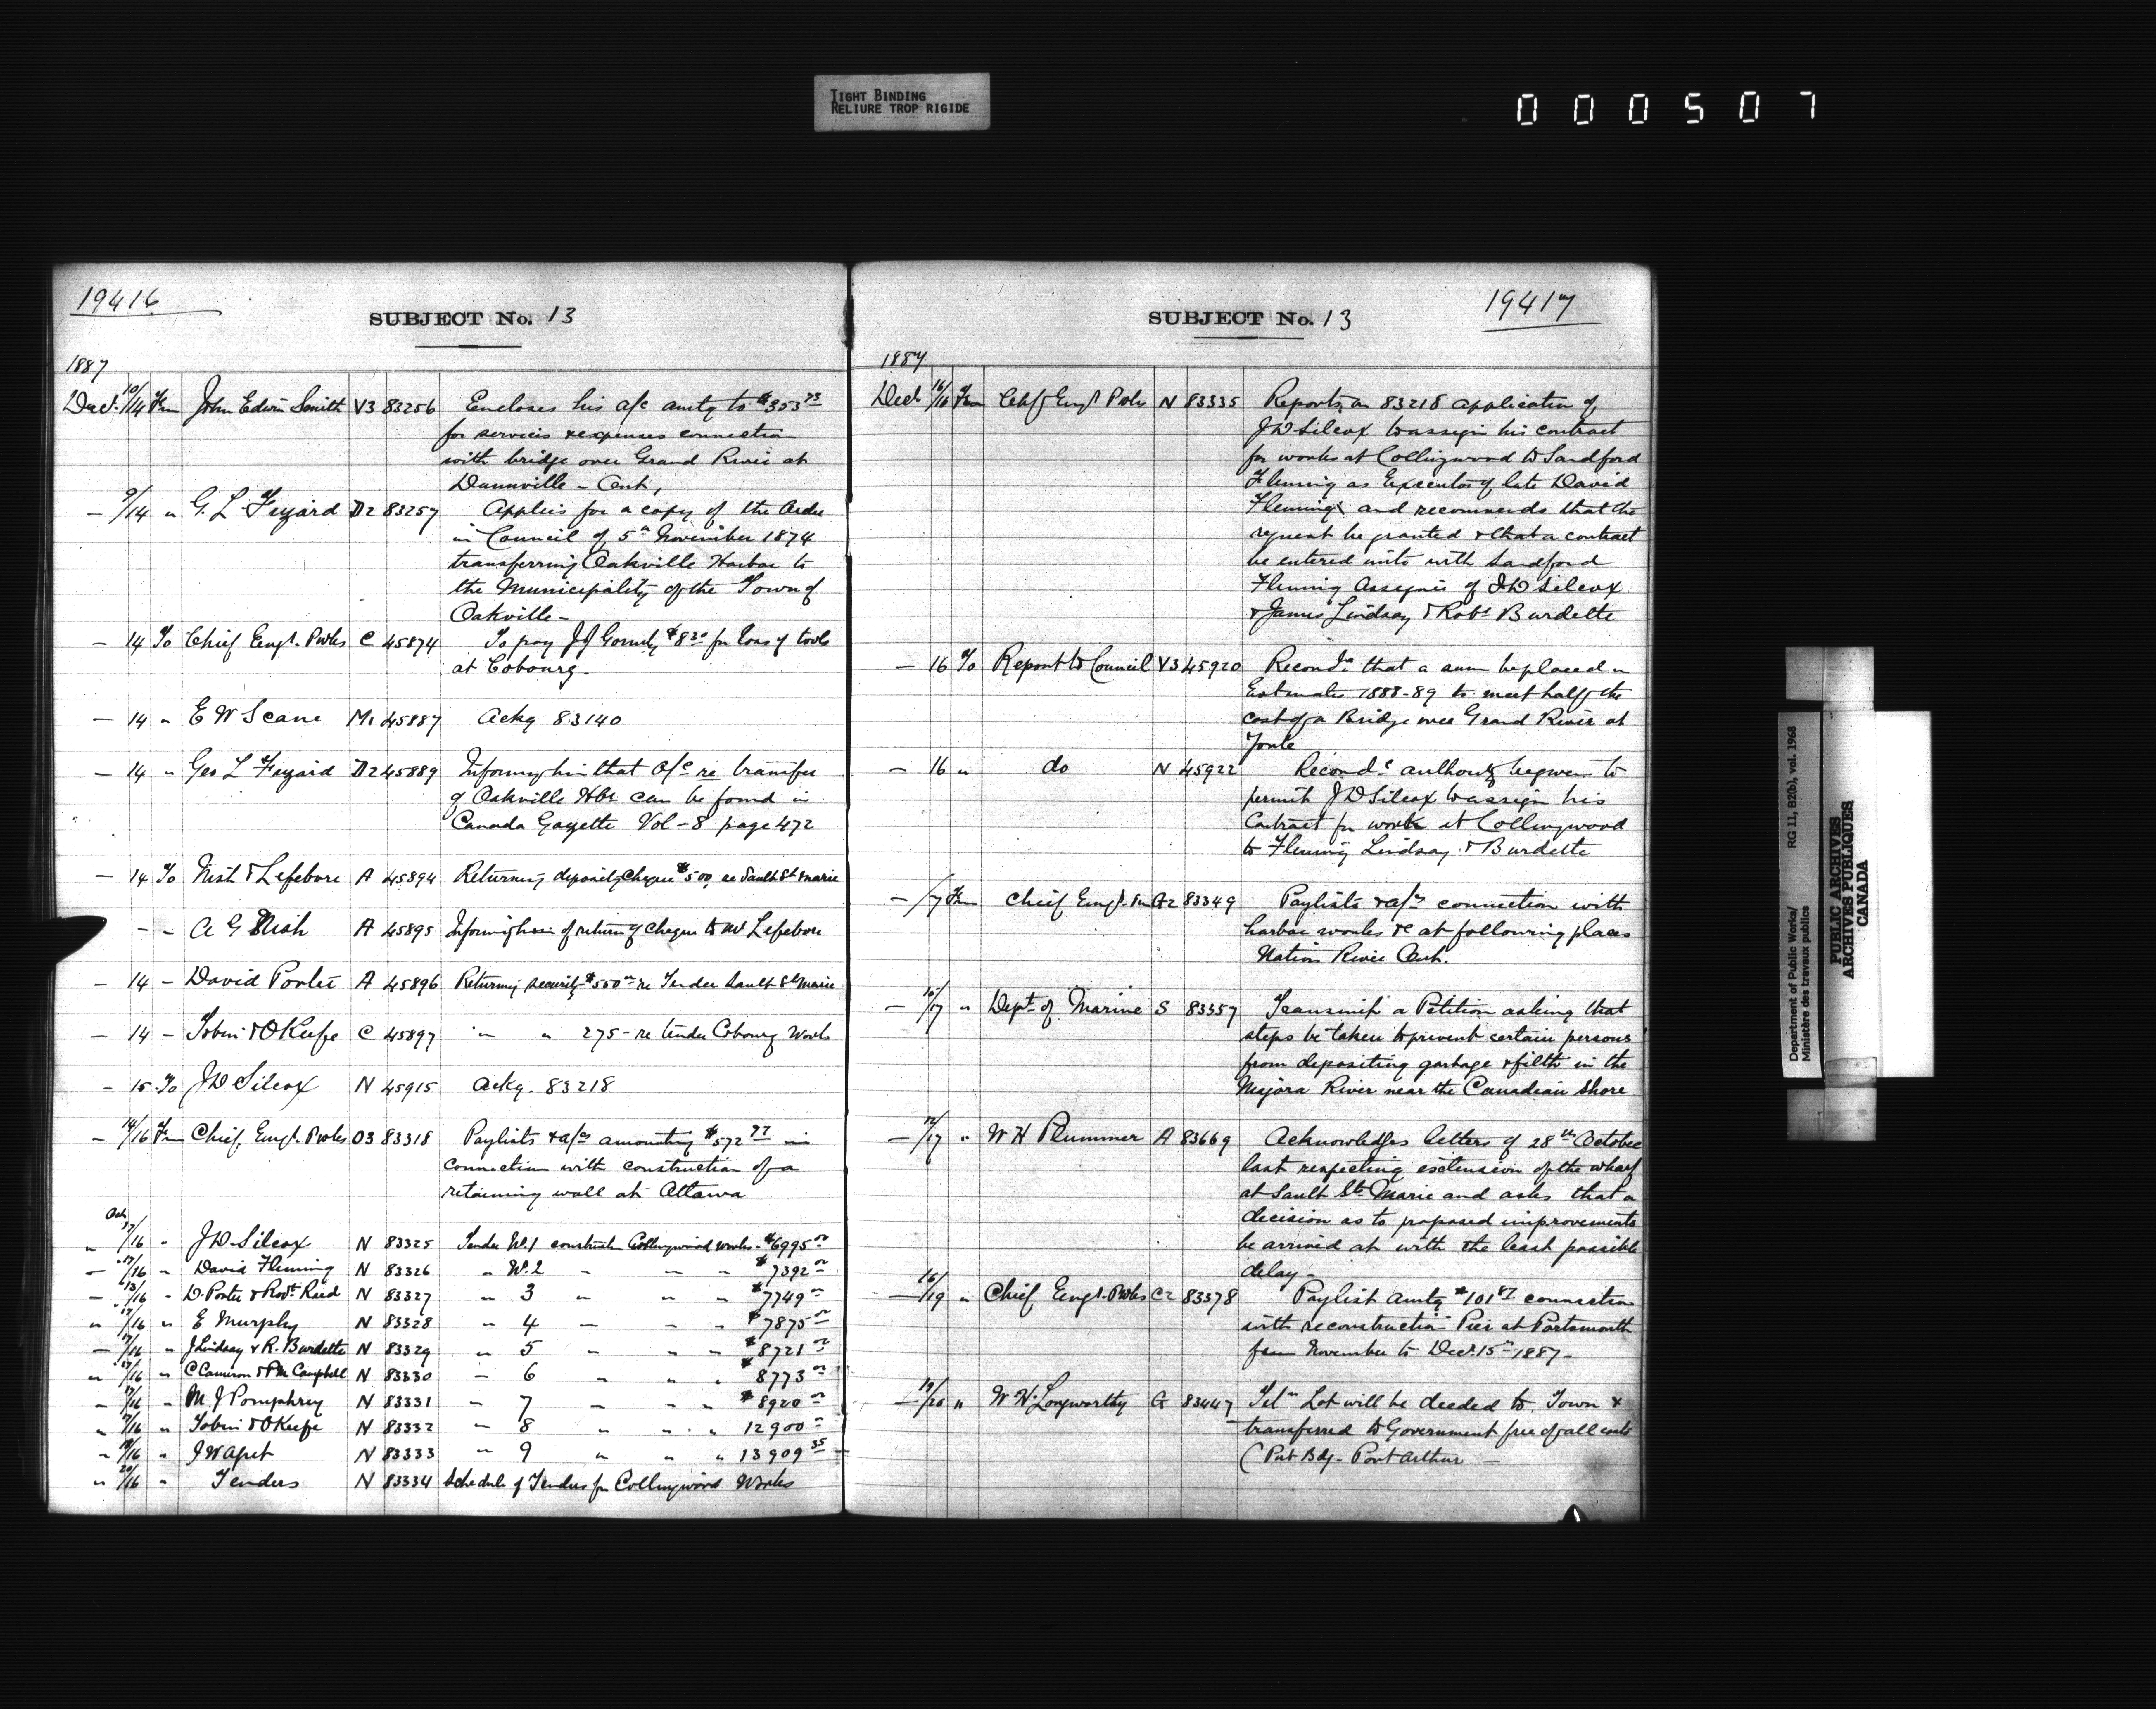 TIGHT BINDING
RELIURE TROP RIGIDE
000507
19416
SUBJECT No. 13
1887
Dect. 10/14 Frm John Edwin Smith V3 83256 Encloses his a/c amtg to $353 73
for services & expenses connection
with bridge over Grand River at
Dunnville - Ont,
— 9/14 " G. L Tizard D2 83257 Applies for a copy of the Order
in Council of 5th November 1874
transferring Oakville Harbor to
the Municipality of the Town of
Oakville -
— 14 To Chief Engr. P Wks C 45874 To pay JJ Gormly $8 20 for loss of tools
at Cobourg -
— 14 " E W Scane M1 45887 Ackg 83140
— 14 " Geo L Tizard D2 45889 Informg him that O/C re transfer
of Oakville Hbr can be found in
Canada Gazette Vol - 8 page 472
— 14 To Nish & Lefebvre A 45894 Returning deposit Cheque $500, re Sault St Marie
- - A G Nish A 45895 Informing him of return of cheque to Mr Lefebvre
— 14 - David Porter A 45896 Returning security $550 re Tender Sault St Marie
— 14 - Tobin & O'Keefe C 45897 " " 275 - re tender Cobourg Works
- 15 To J D Silcox N 45915 Ackg. 83218
— 14/16 Frm Chief Engr. P Wks O3 83318 Paylists & a/cs amounting $572 77 in
connection with construction of a
retaining wall at Ottawa
Oct
" 17/16 " J D Silcox N 83325 Tender No. 1 construction Collingwood works - $6995 00
— 17/16 " David Fleming N 83326 " No. 2 " " " $7392 00
— 13/16 " D. Porter & Robt. Reid N 83327 " 3 " " " $7749 00
" 17/16 " E Murphy N 83328 " 4 — " " $7875 00
— 17/16 " J Lindsay & R. Burdette N 83329 " 5 " " " $8721 00
" 17/16 " C Cameron & P M Campbell N 83330 - 6 " " " $8773 00
- 17/16 " M. J Pomphrey N 83331 - 7 " " " $8920 00
" 17/16 " Tobin & O'Keefe N 83332 - 8 " " " 12900 00
- 18/16 " J W Apet N 83333 " 9 " " " 13909 35
" 20/16 " Tenders N 83334 Schedule of Tenders for Collingwood Works
19417
SUBJECT No. 13
1887
Dect 16/16 Frm Chf Engr P Wks N 83335 Reports on 83218 application of
J D Silcox to assign his contract
for works at Collingwood to Sandford
Fleming as Executor of late David
Fleming and recommends that the
request be granted & that a contract
be entered into with Sandford
Fleming Assignee of J D Silcox
& James Lindsay & Robt Burdette
— 16 To Report to Council V3 45920 Recomds that a sum be placed in
Estimates 1888-89 to meet half the
cost of a Bridge over Grand River at
York
— 16 " do N 45922 Recomds authority be given to
permit J D Silcox to assign his
Contract for work at Collingwood
to Fleming Lindsay & Burdette
— /17 Frm Chief Engr. P W A2 83349 Paylists & a/cs connection with
harbor works &c at following places
Nation River Ont.
— 16/17 " Dept. of Marine S 83357 Transmit a Petition asking that
steps be taken to prevent certain persons
from depositing garbage & filth in the
Niagara River near the Canadian Shore
— 12/17 " W H Plummer A 83669 Acknowledges letters of 28th October
last respecting extension of the wharf
at Sault Ste Marie and asks that a
decision as to proposed improvements
be arrived at with the least possible
delay -
— 16/19 " Chief Engr. P Wks C2 83378 Paylist amtg $101 87 connection
with reconstruction Pier at Portsmouth
from November to Decr. 15th 1887 -
— 19/20 " W. H. Longworthy G 83447 Telm Lot will be deeded to Town &
transferred to Government free of all costs
(Pub Bdg - Port Arthur —
Department of Public Works/ RG 11, B2(b), vol. 1968
Ministère des travaux publics
PUBLIC ARCHIVES
ARCHIVES PUBLIQUES
CANADA